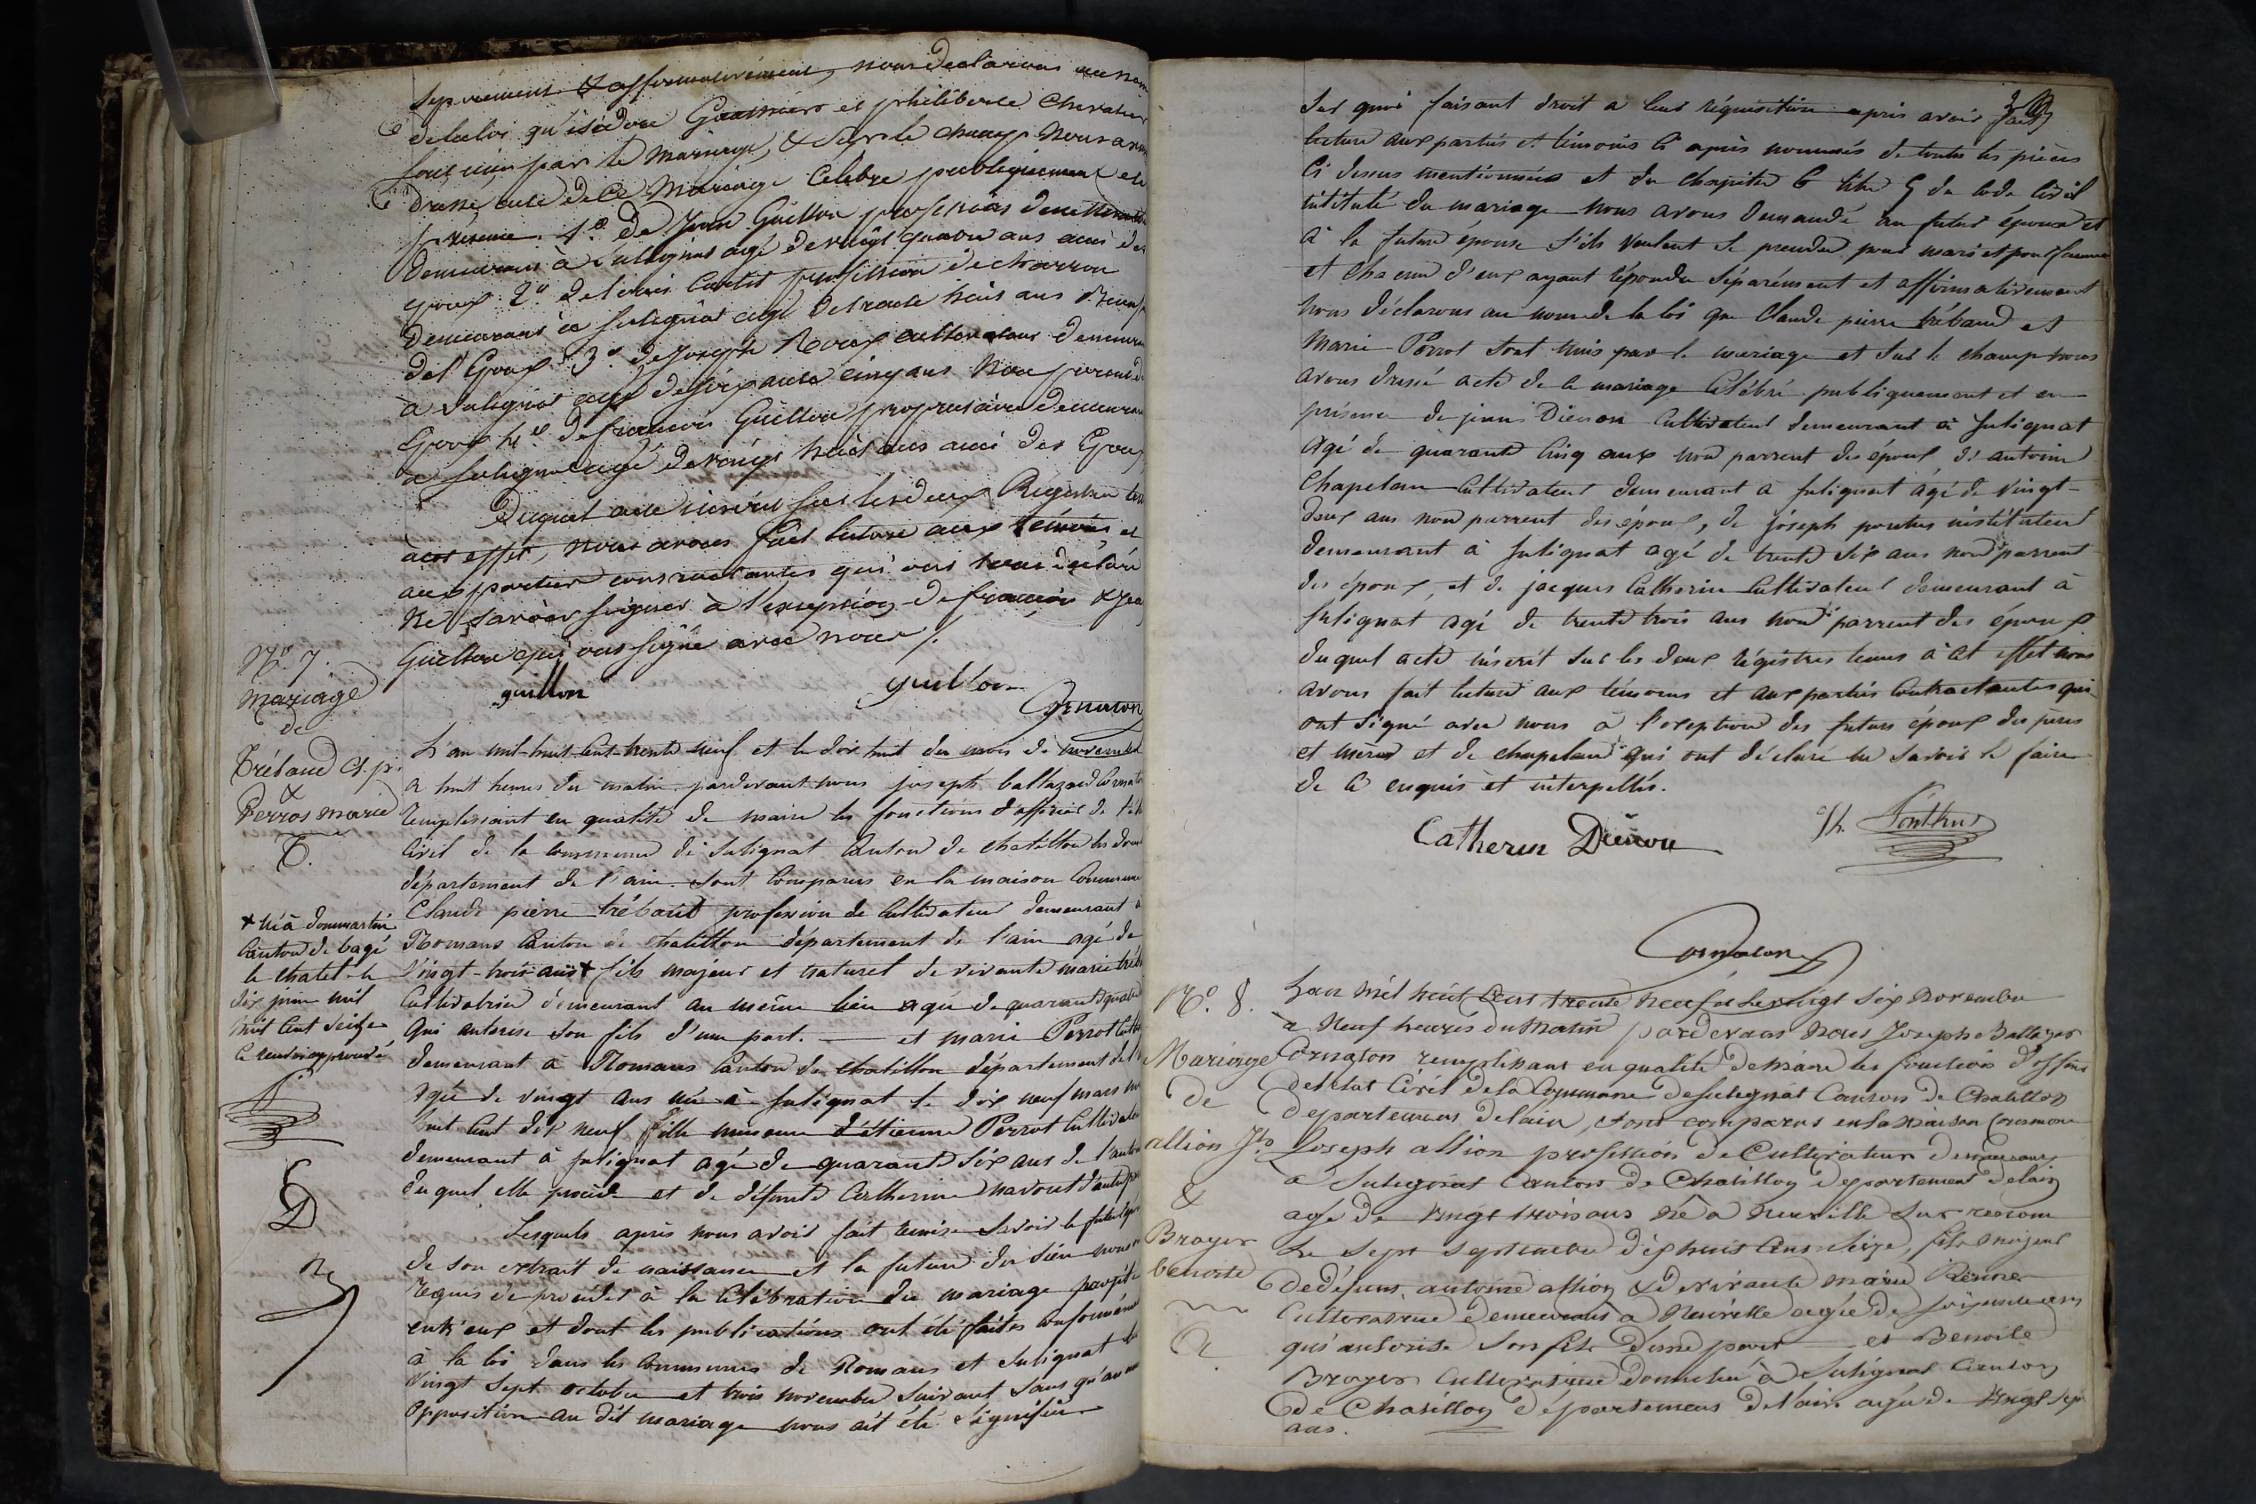 séparément & affirmativement, nous declarons au nom
de la loi qu'isidore Gauthier et philiberte Chevalier
sont unis par le Mariage, & sur le champ Nous avons
dressé acte de Ce Mariage Célébré publiquement en
présence 1º de Jean Guillon profession de
demeurant à Sulignat agé de vingt quatre ans ami des
Epoux 2º de Louis Curtet profession de charron
demeurant à Sulignat agé de trente huit ans
de l'Epoux 3º de Joseph Roux cultivateur demeurant
à Sulignat agé de soixante cinq ans Non parent des
Epoux 4º de françois Guillon propriétaire demeurant
à Sulignat agé de vingt huit ans ami des Epoux
Duquel acte inscrit sur les deux Registres tenus
à cet effet, nous avons fait lecture aux témoins, et
aux parties contractantes qui ont tous déclaré
Ne savoir signer à l'exception de françois & Jean
Guillon qui ont signé avec nous.
guillon guillon
Cornaton
Nº 7.
Mariage
de
Trébaud Cl. p.
&
Perros marie
L'an mil-huit-cent-trente-neuf et le dix huit du mois de novembre
a huit heures du matin pardevant nous joseph baltazard Cornaton
remplissant en qualité de maire les fonctions d'officier de l'état
Civil de la commune de Sulignat Canton de chatillon les dombes
département de l'ain sont Comparus en la maison Commune
Claude pierre trébaud profession de Cultivateur demeurant à
Romans Canton de chatillon département de l'ain agé de
vingt-trois ans + fils majeur et naturel de vivante marie trébaud
Cultivatrice demeurant au même lieu agée de quarante quatre
qui autorise son fils d'une part. — et marie Perrot
demeurant à Romans Canton de chatillon département de l'
agée de vingt ans née à Sulignat le dix neuf mars mil
huit cent dix neuf fille mineure d'étienne Perrot Cultivateur
demeurant à sulignat agé de quarante six ans de l'autorité
duquel elle procède et de défunte Catherine d'autre part
Lesquels après nous avoir fait remise savoir le futur époux
de son extrait de naissance et la future du sien nous ont
requis de procéder à la Célébration du mariage projeté
entr'eux et dont les publications ont été faites conformément
à la loi dans les Communes de Romans et Sulignat les
vingt sept octobre et trois novembre suivant sans qu'aucune
Opposition au dit mariage nous ait été signifiée
+ né à dommartin
Canton de bagé
le chatel le
dix juin mil
huit cent seize
ce renvoi approuvé
Sur quoi faisant droit à leur réquisition après avoir fait
lecture aux parties et témoins ci après nommés de toutes les pièces
Ci dessus mentionnées et du chapitre 6 titre 5 du Code Civil
intitulé du mariage Nous avons demandé au futur époux et
à la future épouse s'ils veulent se prendre pour mari et pour femme
et chacun d'eux ayant répondu séparément et affirmativement
nous déclarons au nom de la loi que Claude pierre trébaud et
Marie Perrot sont unis par le mariage et sur le champ nous
avons dressé acte de ce mariage Célébré publiquement et en
présence de jean Dienon Cultivateur demeurant à Sulignat
agé de quarante cinq ans non parrent des époux, d'antoine
Chapelan Cultivateur demeurant à sulignat agé de vingt-
deux ans non parrent des époux, de joseph ponthus instituteur
demeurant à sulignat agé de trente six ans non parrent
des époux, et de jacques Catherin Cultivateur demeurant à
Sulignat agé de trente trois ans non parrent des époux
duquel acte inscrit sur les deux régistres tenus à cet effet nous
avons fait lecture aux témoins et aux parties contractantes qui
ont signé avec nous à l'exception des futurs époux des pères
et mères et de chapelan qui ont déclaré ne savoir le faire
de ce enquis et interpellés.
Catherin Diénon Jh. Ponthus
Cornaton
Nº. 8.
Mariage
de
allion Jh.
&
Broyer
benoite
L'an mil huit Cent trente Neuf et le vingt six Novembre
à Neuf heures du Matin pardevant Nous Joseph Baltazar
Cornaton remplissant en qualité de Maire les fonctions d'officier
de l'état Civil de la Commune de Sulignat Canton de Chatillon
departement de l'ain, sont comparus en la Maison Commune
Joseph allion profession de Cultivateur demeurant
à Sulignat Canton de Chatillon departement de l'ain
agé de vingt trois ans Né à Neuville sur renom
Le sept septembre dix huit Cent Seize, fils Majeur
de défunt antoine allion & de vivante Marie
Cultivatrice demeurant à Neuville agée de soixante ans
qui autorise son fils d'une part — et Benoite
Broyer Cultivatrice domiciliée à Sulignat Canton
de Chatillon département de l'ain agée de vingt sept
ans.